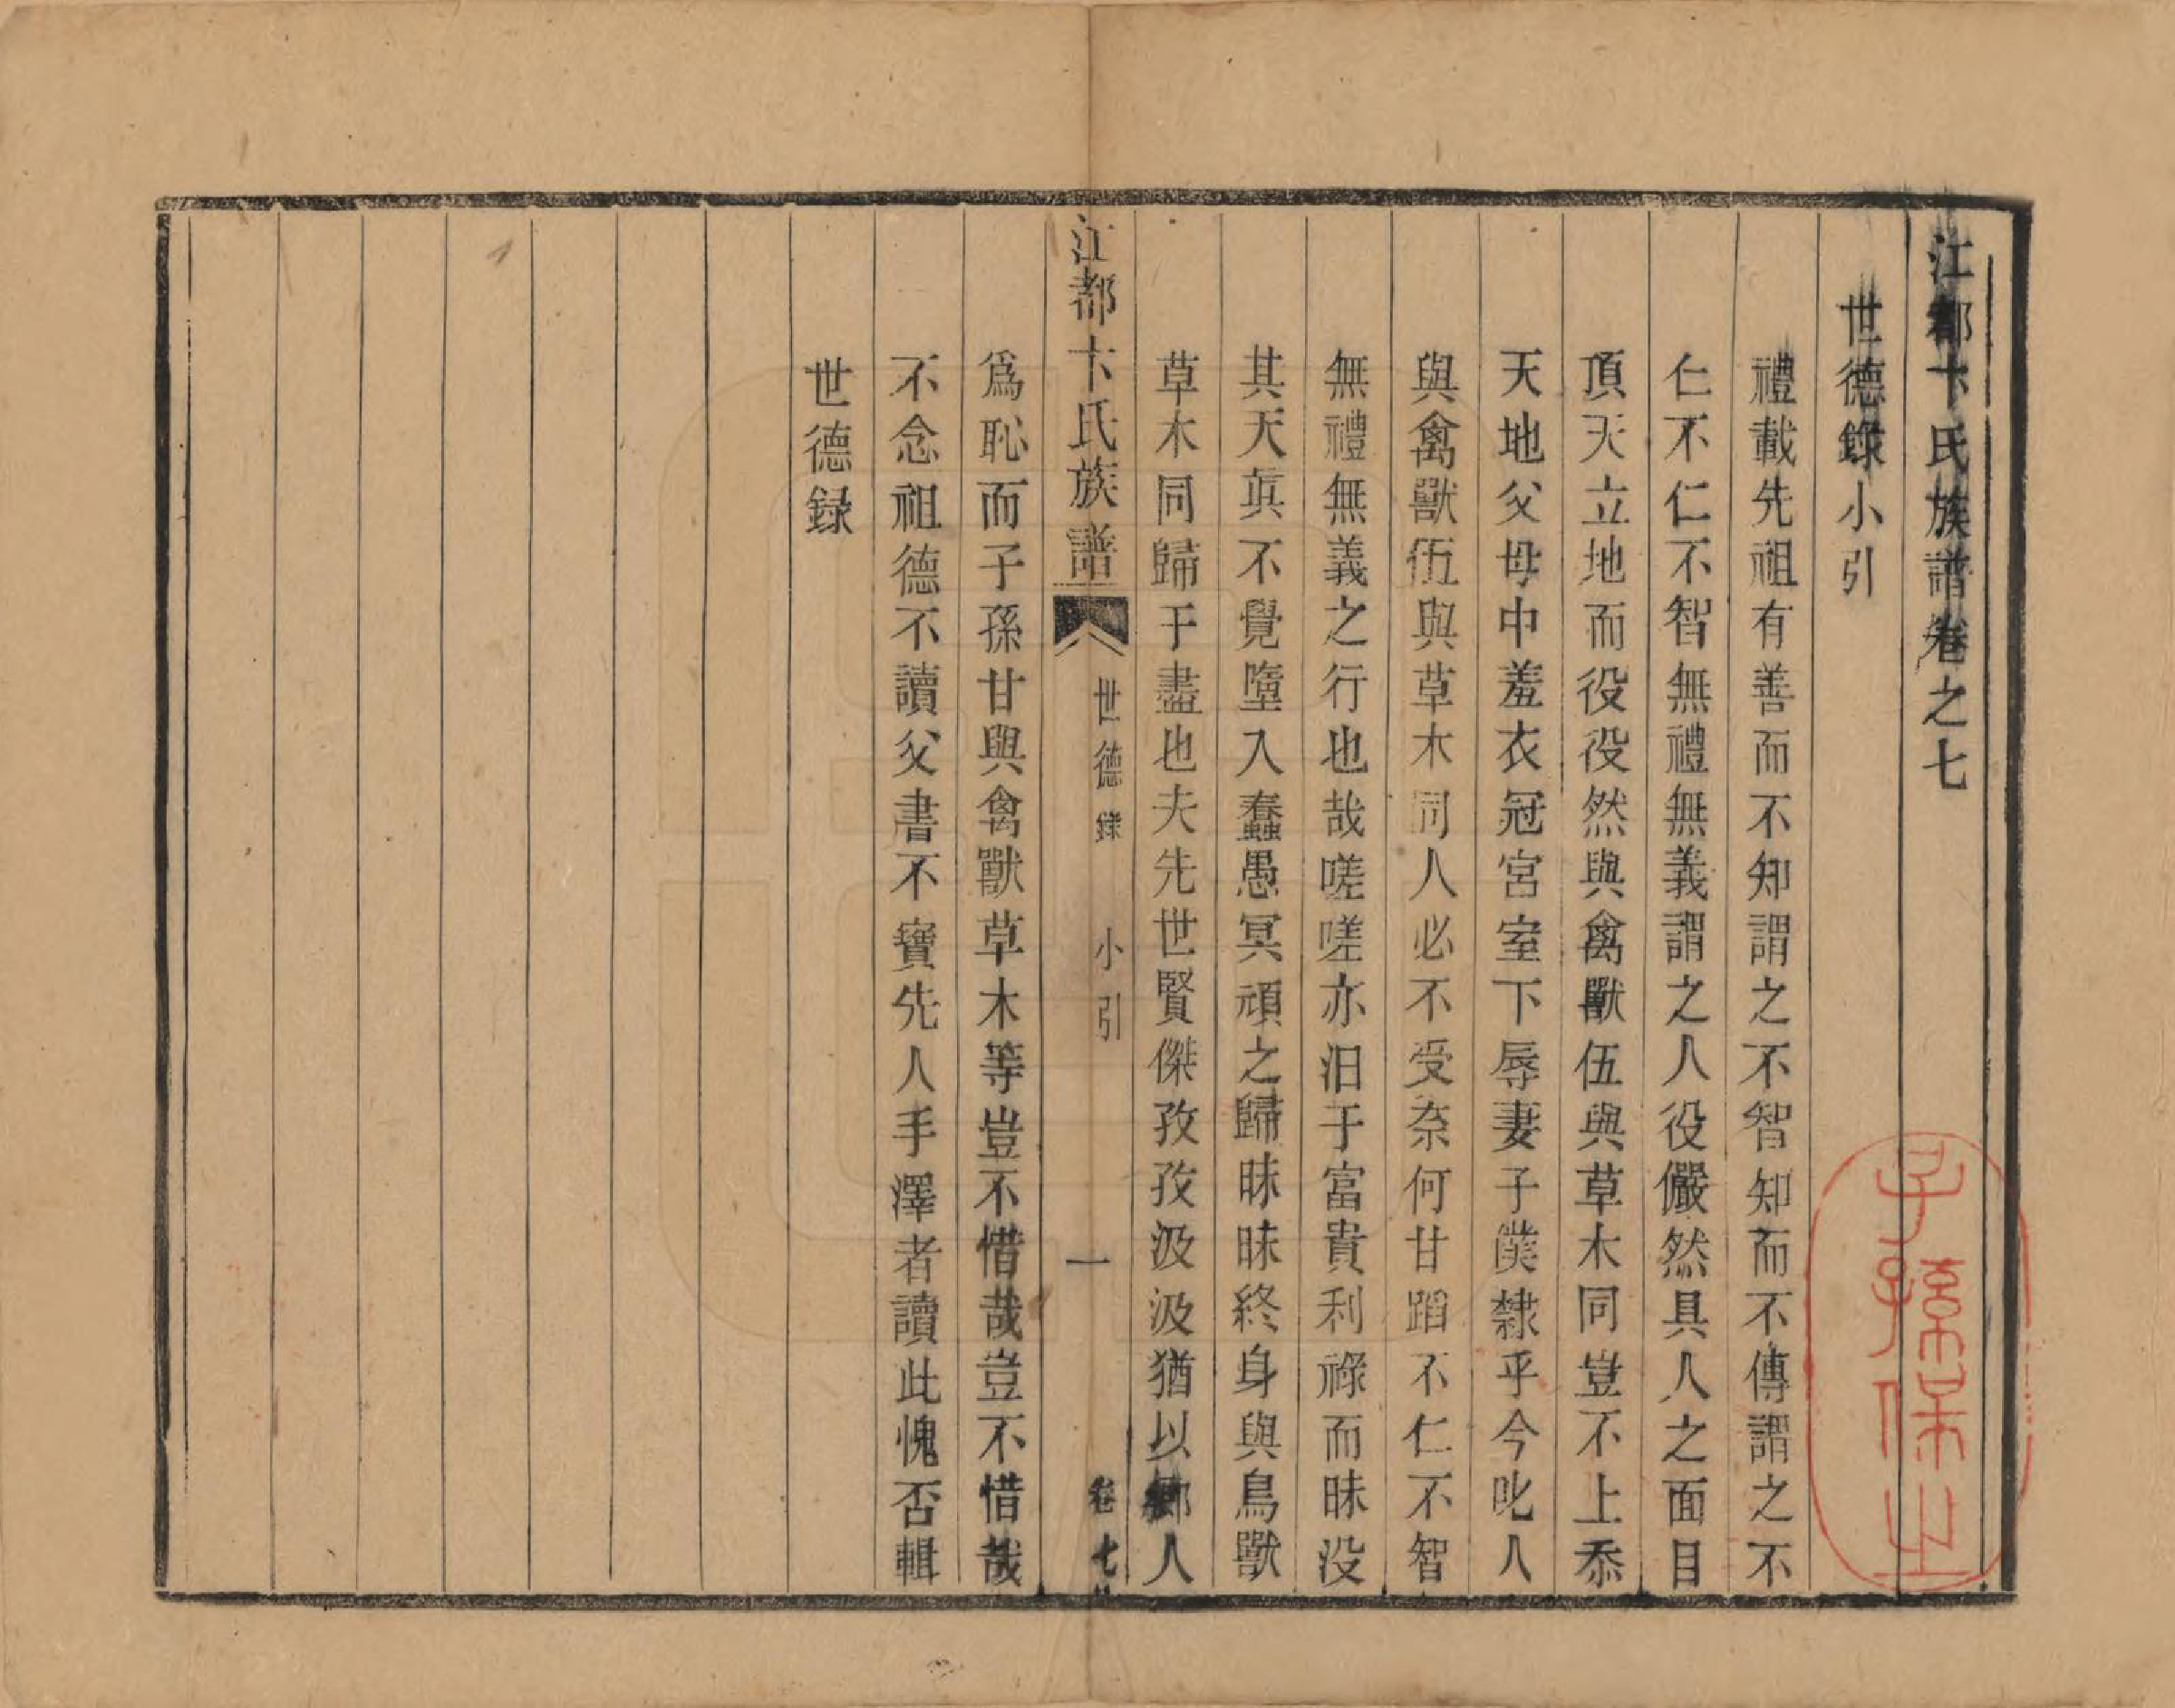 江都卞氏族譜卷之七
世德錄小引
禮載先祖有善而不知謂之不智知而不傳謂之不
仁不仁不智無禮無義謂之人役儼然具人之面目
頂天立地而役役然與禽獸伍與草木同豈不上忝
天地父母中羞衣冠宮室下辱妻子僕隸乎今叱人
與禽獸伍與草木同人必不受奈何甘蹈不仁不智
無禮無義之行也哉嗟嗟亦汩于富貴利祿而昧没
其天真不覺墮入蠢愚冥頑之歸昧昧終身與鳥獸
草木同歸于盡也夫先世賢傑孜孜汲汲猶以鄉人
江都卞氏族譜
世德錄
小引
一
卷七
爲恥而子孫甘與禽獸草木等豈不惜哉豈不惜哉
不念祖德不讀父書不寶先人手澤者讀此愧否輯
世德録
子孫保之